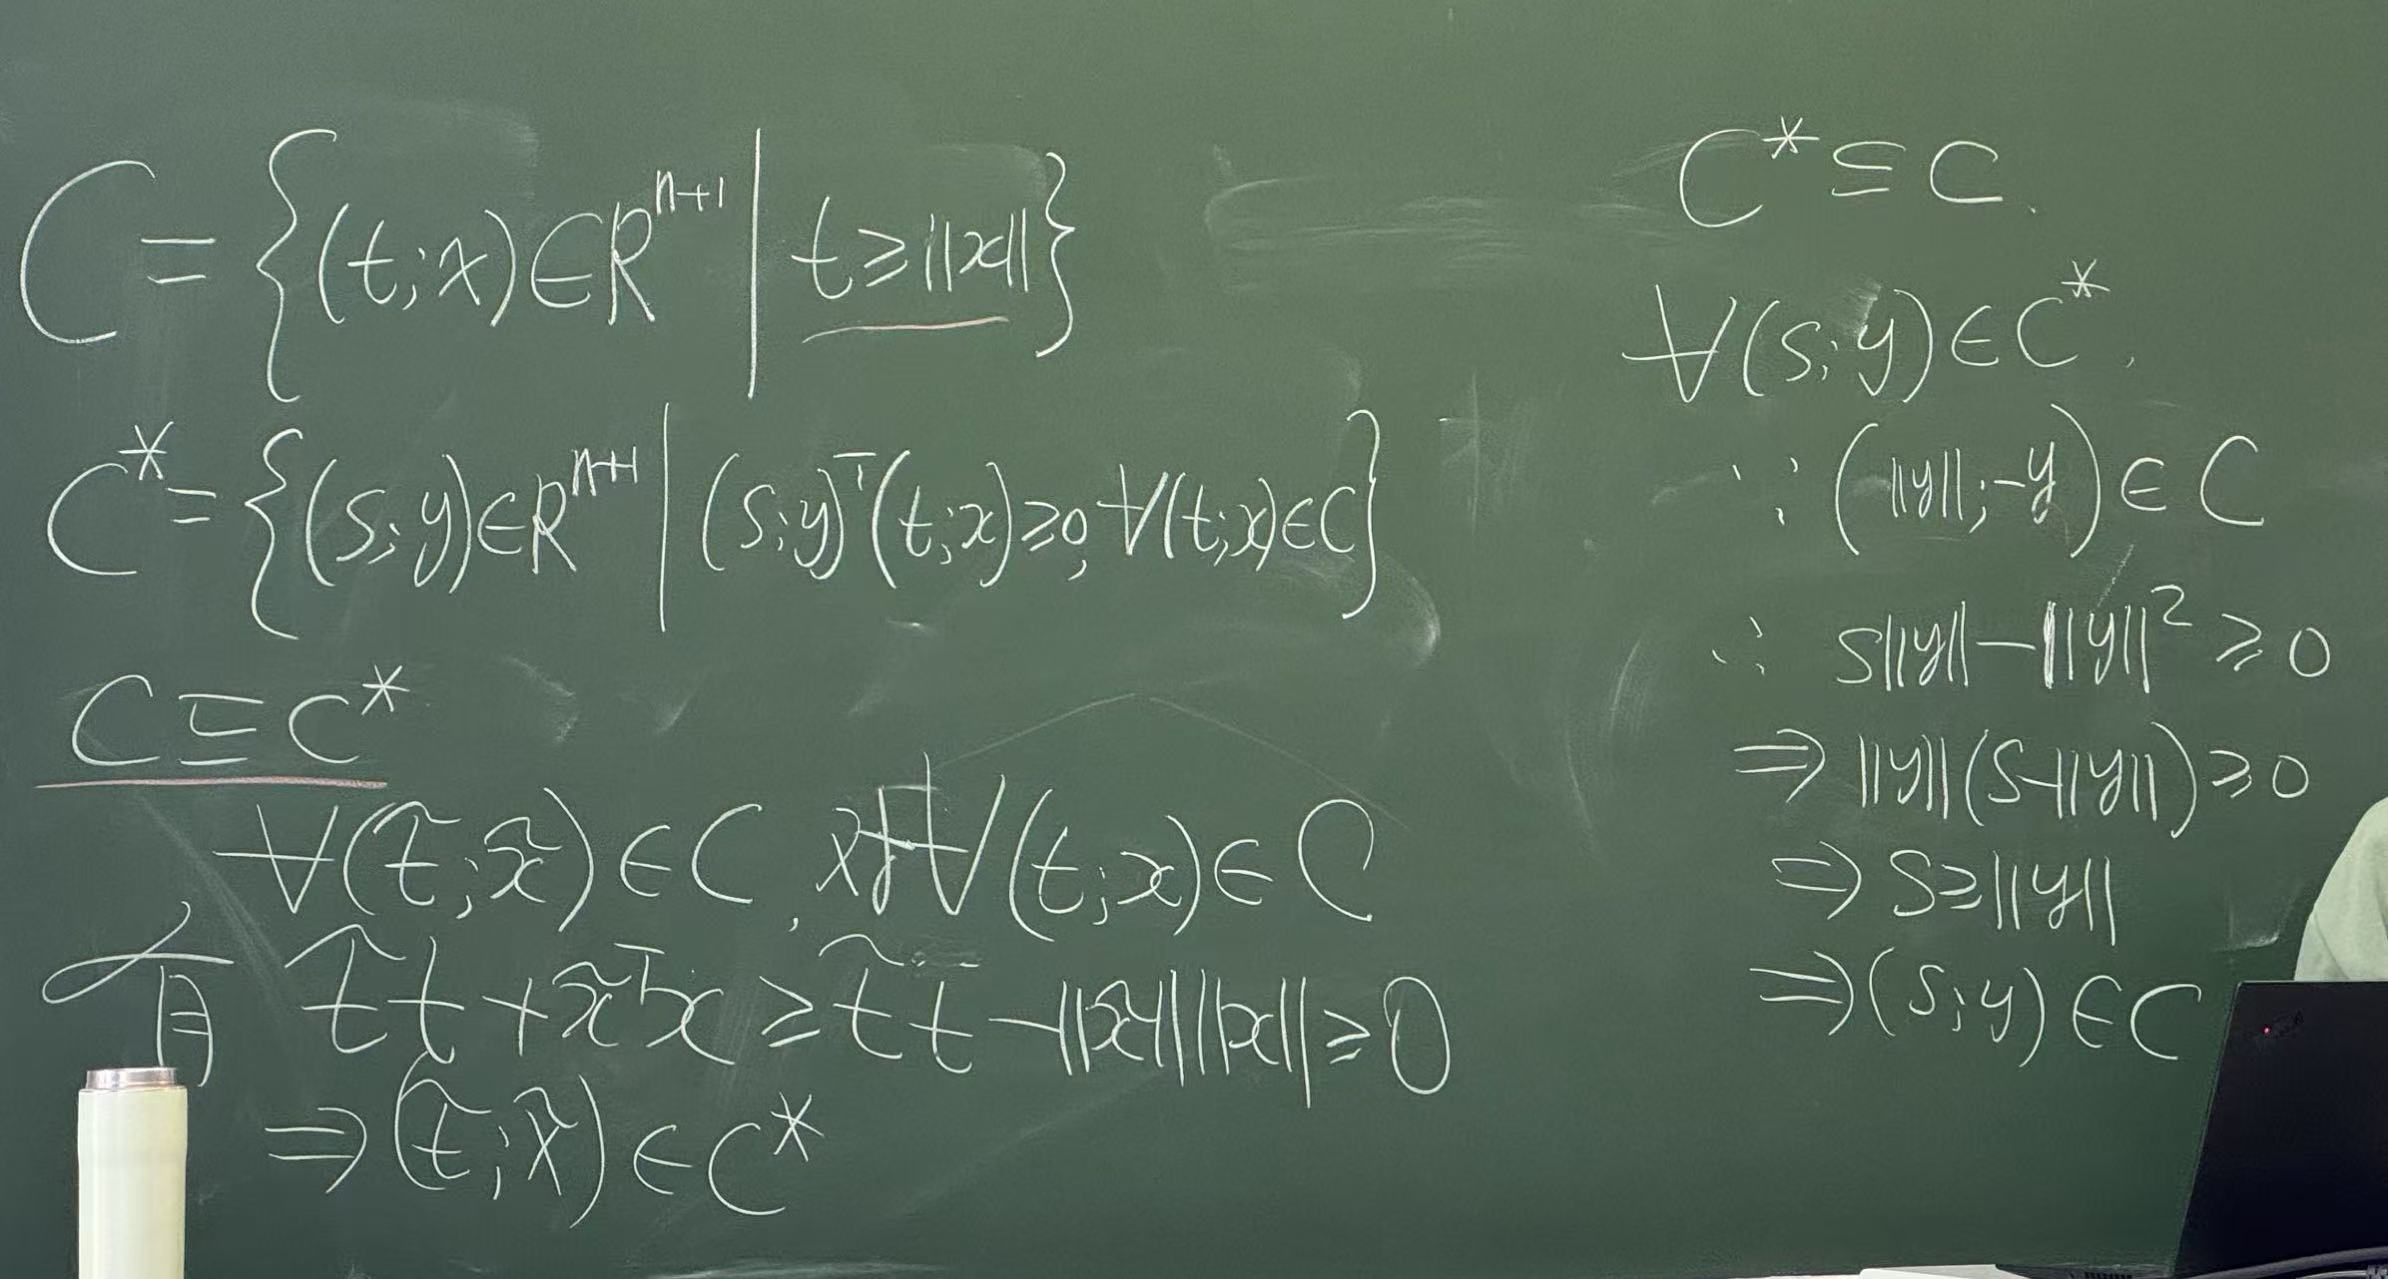 C = {(t;x)∈R^{n+1} | t≥||x||}
C* = {(s;y)∈R^{n+1} | (s;y)^T(t;x)≥0, ∀(t;x)∈C}
C⊆C*
∀(t̃;x̃)∈C, 对∀(t;x)∈C
有 t̃t+x̃^Tx≥t̃t-||x̃||||x||≥0
⇒(t̃;x̃)∈C*
C*⊆C.
∀(s;y)∈C*,
∵(||y||;-y)∈C
∴ s||y||-||y||²≥0
⇒||y||(s-||y||)≥0
⇒s≥||y||
⇒(s;y)∈C